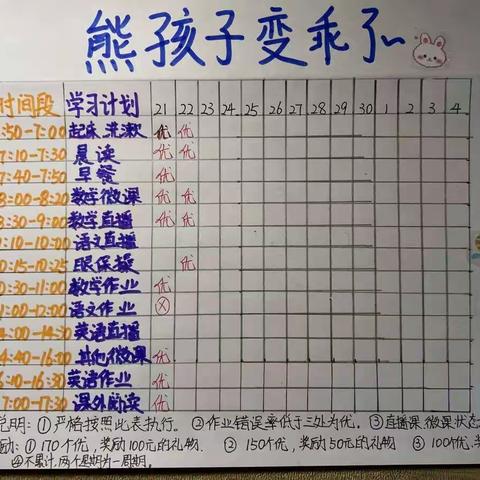 熊孩子变乖了
时间段 学习计划 21 22 23 24 25 26 27 28 29 30 1 2 3 4
:50-7:00 起床洗漱 优 优
7:10-7:30 晨读 优 优
7:40-7:50 早餐 优
8:00-8:20 数学微课 优 优
8:30-9:00 数学直播 优 优
:10-10:00 语文直播
0:15-10:25 眼保操 优
0:30-11:00 数学作业 优
1:00-12:00 语文作业
4:00-14:30 英语直播
4:40-16:00 其他微课 优
6:10-16:30 英语作业 优
7:00-17:30 课外阅读 优
说明:①严格按照此表执行。②作业错误率低于三处为优。③直播课.微课状态
励:①170个优,奖励100元的礼物. ②150个优,奖励50元的礼物. ③100个优.
④不累计,两个星期为一周期。